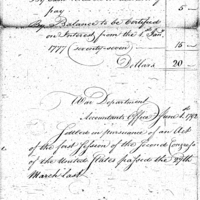 pay 5 —
By Balance to be Certified
on Interest from the 1. Jany.
1777 seventy seven 15 —
Dollars 20 —
War Department
Accountants Office June 1st 1792
Settled in pursuance of an Act
of the first Session of the Second Congress
of the United States passed the 27th
March last